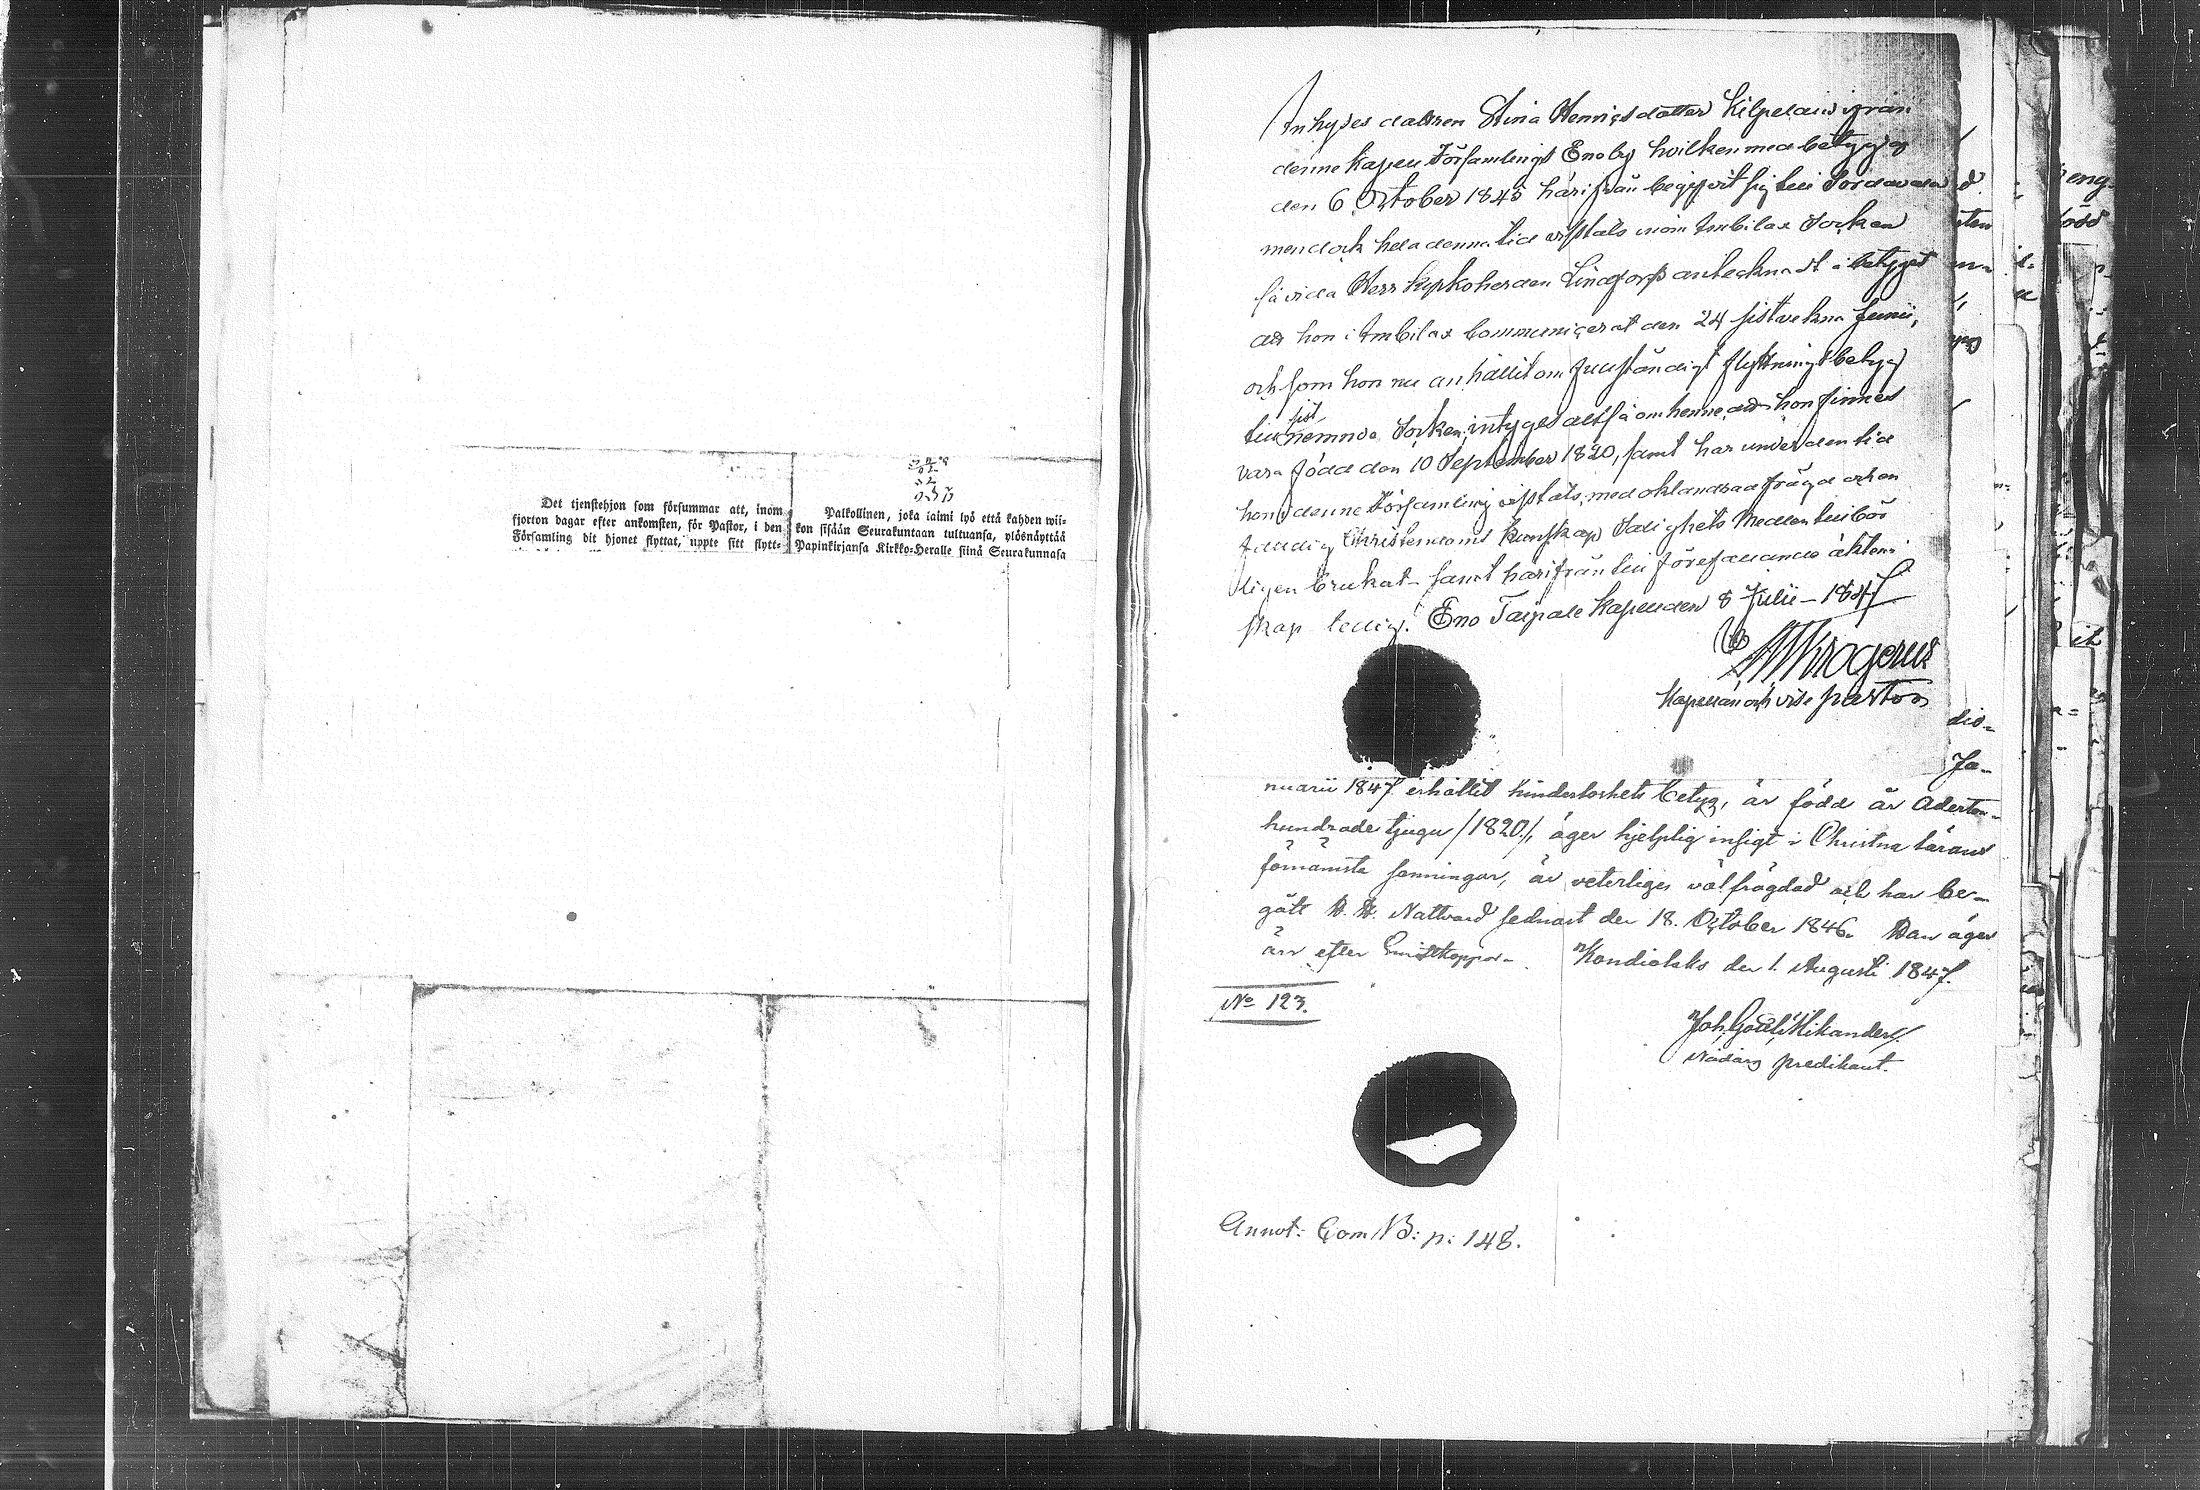 Det tjenstehjon som försummar att, inom
fjorton dagar efter ankomsten, för Pastor, i den
Församling dit hjonet flyttat, uppte sitt flytt=
Palkollinen, joka laimi lyö että kahden wii=
kon sisään Seurakuntaan tultuansa, ylösnäyttää
Papinkirjansa Kirkko=Heralle siinä Seurakunnasa
Inhyses dottren Stina Henricsdotter Kilpeläin ifrån
denne Kapell Församlings Eno by hvilken med betyg af
den 6 October 1845 härifrån begifvit sig till Sordavala
men dock hela denna tid vistats inom Imbilax Socken
så vida Herr Kyrkoherden Lindfors antecknadt i betyget
att hon i Imbilax Communicerat den 24 sistvekne Junii,
och som hon nu anhållit om fullständigt flyttningsbetyg
till sist nemnda Socken; intygas altså om henne att hon finnes
vara född den 10 September 1820, samt har under den tid
hon i denne Församling vistats, med oklandrad frägd och en
Christendoms kunskap Salighets Medlen tillbör
ligen brukat samt härifrån till förefallande äkten
skap ledig. Eno Taipale Kapell den 8 Julii - 1847
Krogerus
Kapellan och vise pastor
dio=
Ja=
nuarii 1847 erhållit hinderlöshets betyg, är född år Aderton=
hundrade tjugu /1820/, äger hjelplig insigt i Christna lärans
förnämsta sanningar, är veterligen välfrägdad och har be=
gått H. H. Nattvard sednast den 18. October 1846. Han äger
ärr efter Smittkoppor. Kondiolaks den 1. Augusti 1847.
No 123.
Joh. Gottl. Mikander
Nådårs predikant.
Annot: Com. B: p: 148.